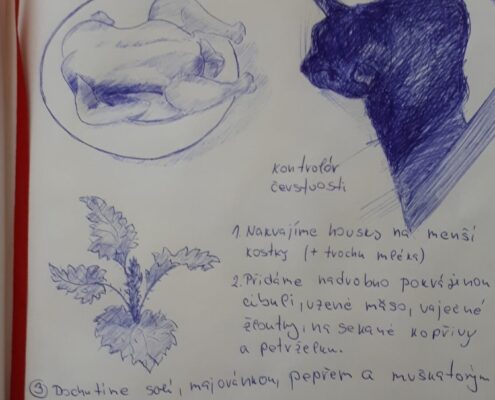 kontrolór
čerstvosti
1. Nakrájíme housku na menší
kostky (+ trochu mléka)
2. Přidáme nadrobno pokrájenou
cibuli, uzené maso, vaječné
žloutky, nasekané kopřivy
a petrželku.
3 Dochutíme solí, majoránkou, pepřem a muškátovým